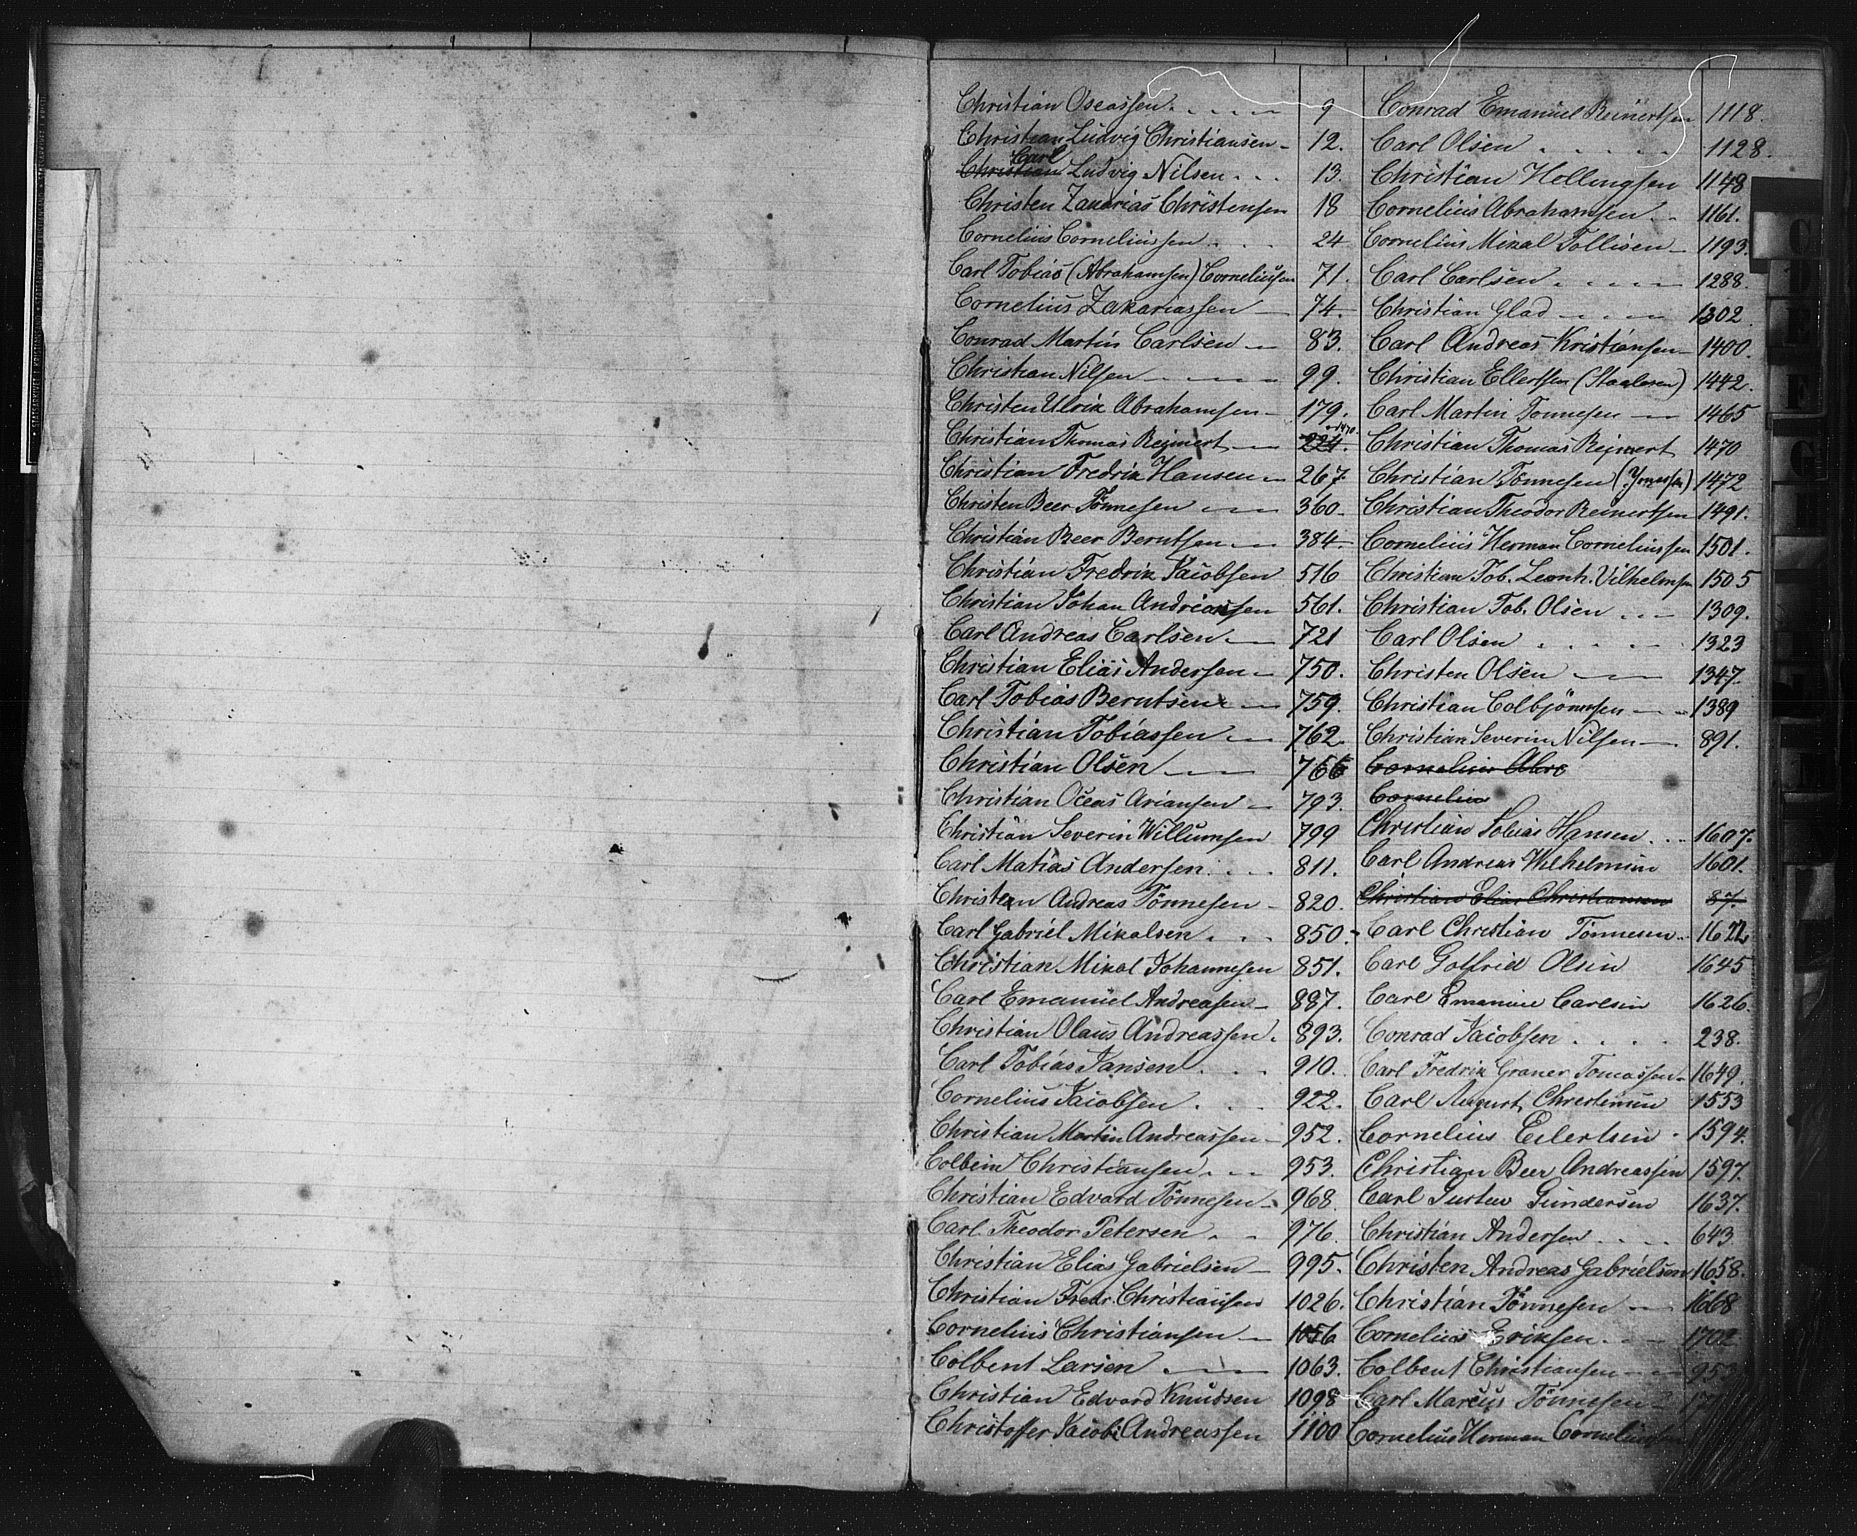 Christian Oseassen 9
Christian Ludvig Christiansen 12.
Carl
Christian Ludvig Nilsen 13.
Christen Zakarias Christensen 18
Cornelius Corneliussen 24
Carl Tobias (Abrahamsen) Corneliussen 71.
Cornelius Zakariassen 74.
Conrad Martin Carlsen 83.
Christian Nilsen 99.
Christen Ulrik Abrahamsen 179.
Christian Thomas Rejnert 224. 1470
Christian Fredrik Hansen 267.
Christen Beer Tönnesen 360.
Christian Beer Berntsen 384.
Christian Fredrik Jacobsen 516
Christian Johan Andreassen 561.
Carl Andreas Carlsen 721
Christian Elias Andersen 750.
Carl Tobias Berntsen 759.
Christian Tobiassen 762.
Christian Olsen 766
Christian Oceas Ariansen 793.
Christian Severin Willumsen 799
Carl Matias Andersen 811.
Christian Andreas Tönnesen 820.
Carl Gabriel Mikalsen 850.
Christian Mikal Johannesen 851.
Carl Emanuel Andreasen 887.
Christian Olaus Andreassen 893.
Carl Tobias Jansen 910.
Cornelius Jacobsen 922.
Christian Martin Andreassen 952.
Colbein Christiansen 953.
Christian Edvard Tönnesen 968.
Carl Theodor Petersen 976.
Christian Elias Gabrielsen 995.
Christian Fredr. Christiansen 1026.
Cornelius Christiansen 1056
Colbent Larsen 1063.
Christian Edvard Knudsen 1098
Christoffer Jacob Andreassen 1100
Conrad Emanuel Reinertsen 1118.
Carl Olsen 1128.
Christian Hollingsen 1148
Cornelius Abrahamsen 1161.
Cornelius Mikal Tollisen 1193.
Carl Carlsen 1288.
Christian Glad 1302
Carl Andreas Kristiansen 1400.
Christian Ellertsen (Staalesen) 1442.
Carl Martin Tonnesen 1465
Christian Thomas Rejnert 1470
Christian Tönnesen 1472
Christian Theodor Reinertsen 1491.
Cornelius Herman Corneliussen 1501.
Christian Tob. Leonh. Vilhelmsen 1505
Christian Tob. Olsen 1309.
Carl Olsen 1323
Christen Olsen 1347.
Christian Colbjörnsen 1389
Christian Severin Nilsen 891.
Cornelius Abra
Cornelius
Christian Tobias Hansen 1607.
Carl Andreas Wilhelmsen 1601.
Christian Elias Christiansen 87.
Carl Christian Tönnesen 1622
Carl Gotfried Olsen 1645
Carl Emanuel Carlsen 1626.
Conrad Jacobsen 238.
Carl Fredrik Graner Tomassen 1649.
Carl August Christensen 1553
Cornelius Eilertsen 1594.
Christian Beer Andreassen 1597.
Carl Gustav Gundersen 1637.
Christian Andersen 643.
Christen Andreas Gabrielsen 1658.
Christian Tönnesen 1668
Cornelius Eriksen 1702
Colbent Christiansen 953
Carl Marcus Tönnesen
Cornelius Herman Corneliussen
C
D
E
F
G
H